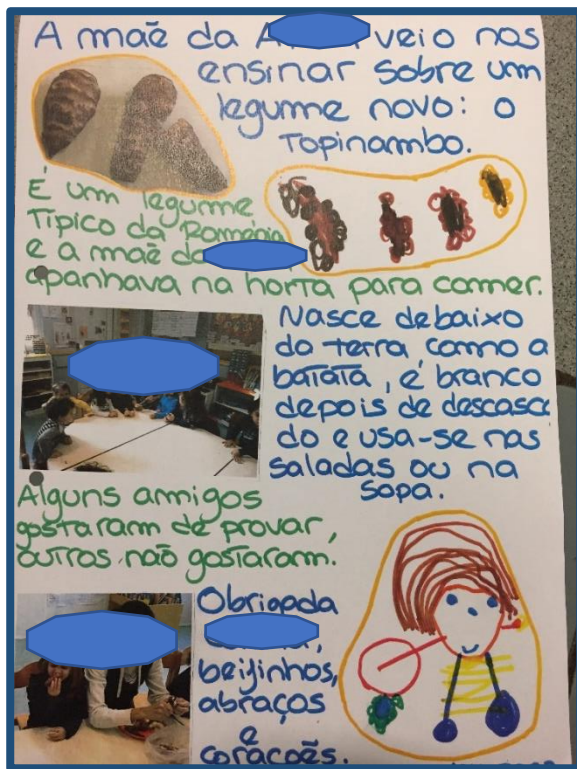 A mãe da A veio nos
ensinar sobre um
legume novo: o
Topinambo.
É um legume
Típico da Roménia
e a mãe da
apanhava na horta para comer.
Nasce debaixo
da terra, como a
batata, é branco
depois de descasca
do e usa-se nas
saladas ou na
sopa.
Alguns amigos
gostaram de provar,
outros não gostaram.
Obrigada
beijinhos,
abraços
e
corações.